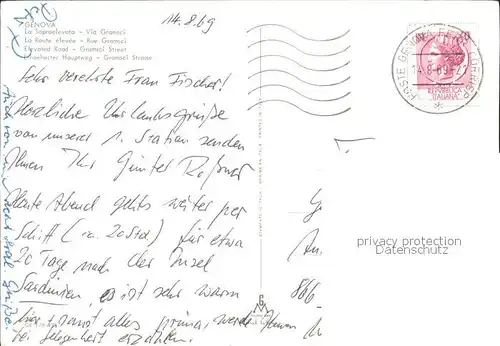 14.8.69
GENOVA
La Sopraelevata - Via Gramsci
La Route élevée - Rue Gramsci
Elevated Road - Gramsci Street
Erhoehter Hauptweg - Gramsci Strasse
Sehr verehrte Frau Fischer!
Herzliche Urlaubsgrüße
von unserer 1. Station senden
Ihnen Ihr Günter
Heute Abend gehts weiter per
Schiff (ca. 20 Std) für etwa
20 Tage nach der Insel
Sardinien, es ist sehr warm
hier + sonst alles prima, werde Ihnen
bei Gelegenheit erzählen.
POSTE GENOVA FERR
14-8-69
REPUBBLICA
ITALIANA
privacy protection
Datenschutz
866-